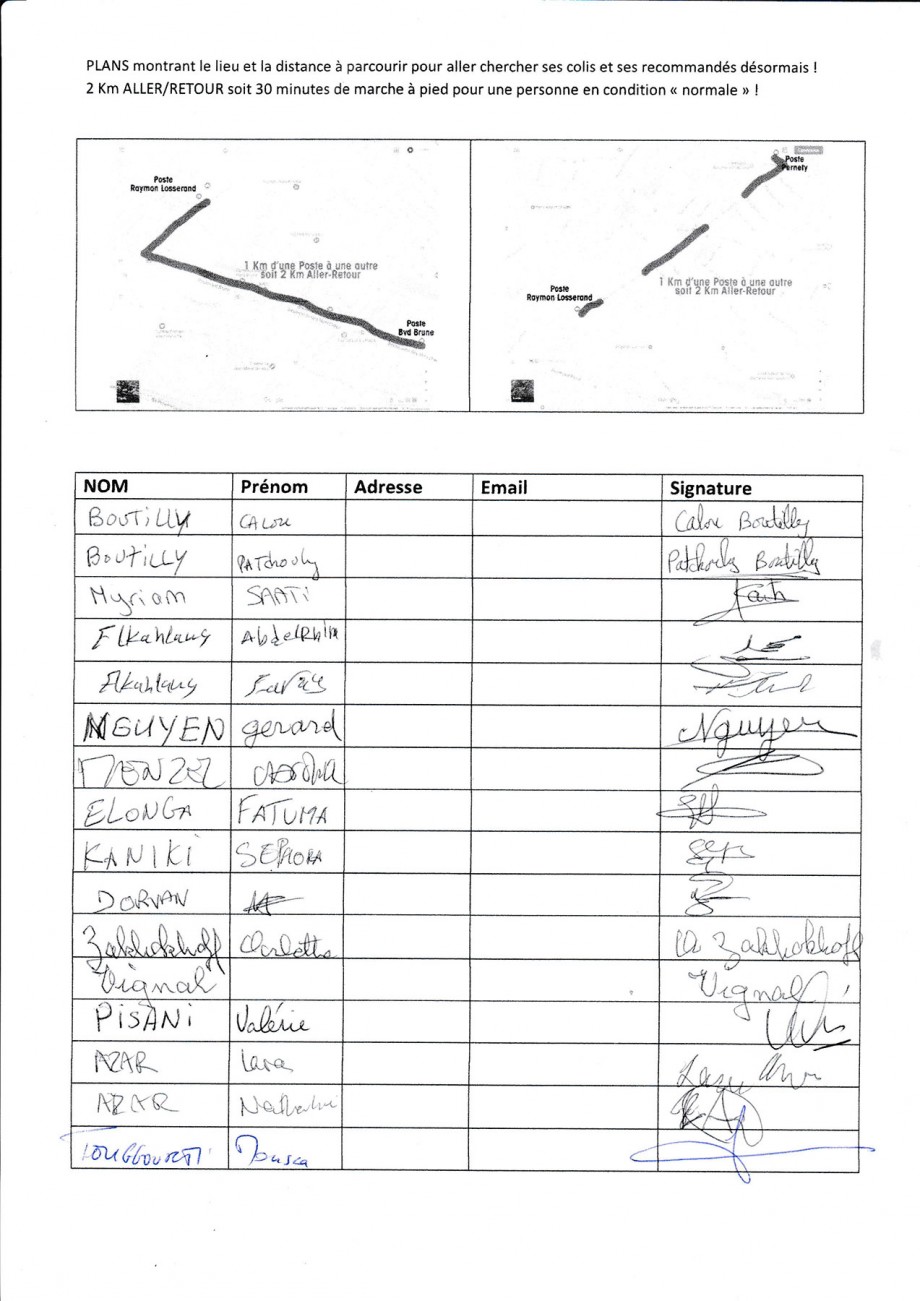 PLANS montrant le lieu et la distance à parcourir pour aller chercher ses colis et ses recommandés désormais !
2 Km ALLER/RETOUR soit 30 minutes de marche à pied pour une personne en condition « normale » !
Poste
Raymon Losserand
1 Km d'une Poste à une autre
soit 2 Km Aller-Retour
Poste
Bvd Brune
Poste
Pernety
1 Km d'une Poste à une autre
soit 2 Km Aller-Retour
Poste
Raymon Losserand
NOM Prénom Adresse Email Signature
BOUTILLY CALOU Calou Boutilly
BOUTILLY PATchouly Patchouly Boutilly
Myriam SAATI
Elkahlaoug AbdelRhim
Elkahlaoug
NGUYEN gerard Nguyen
MENZEL
ELONGA FATUMA
KANIKI SEPHORA
DORVAN
Zakhokhoff Charlotte Ch Zakhokhoff
Vignal Vignal
PISANI Valérie
AZAR Lara
AZAR Nathalie